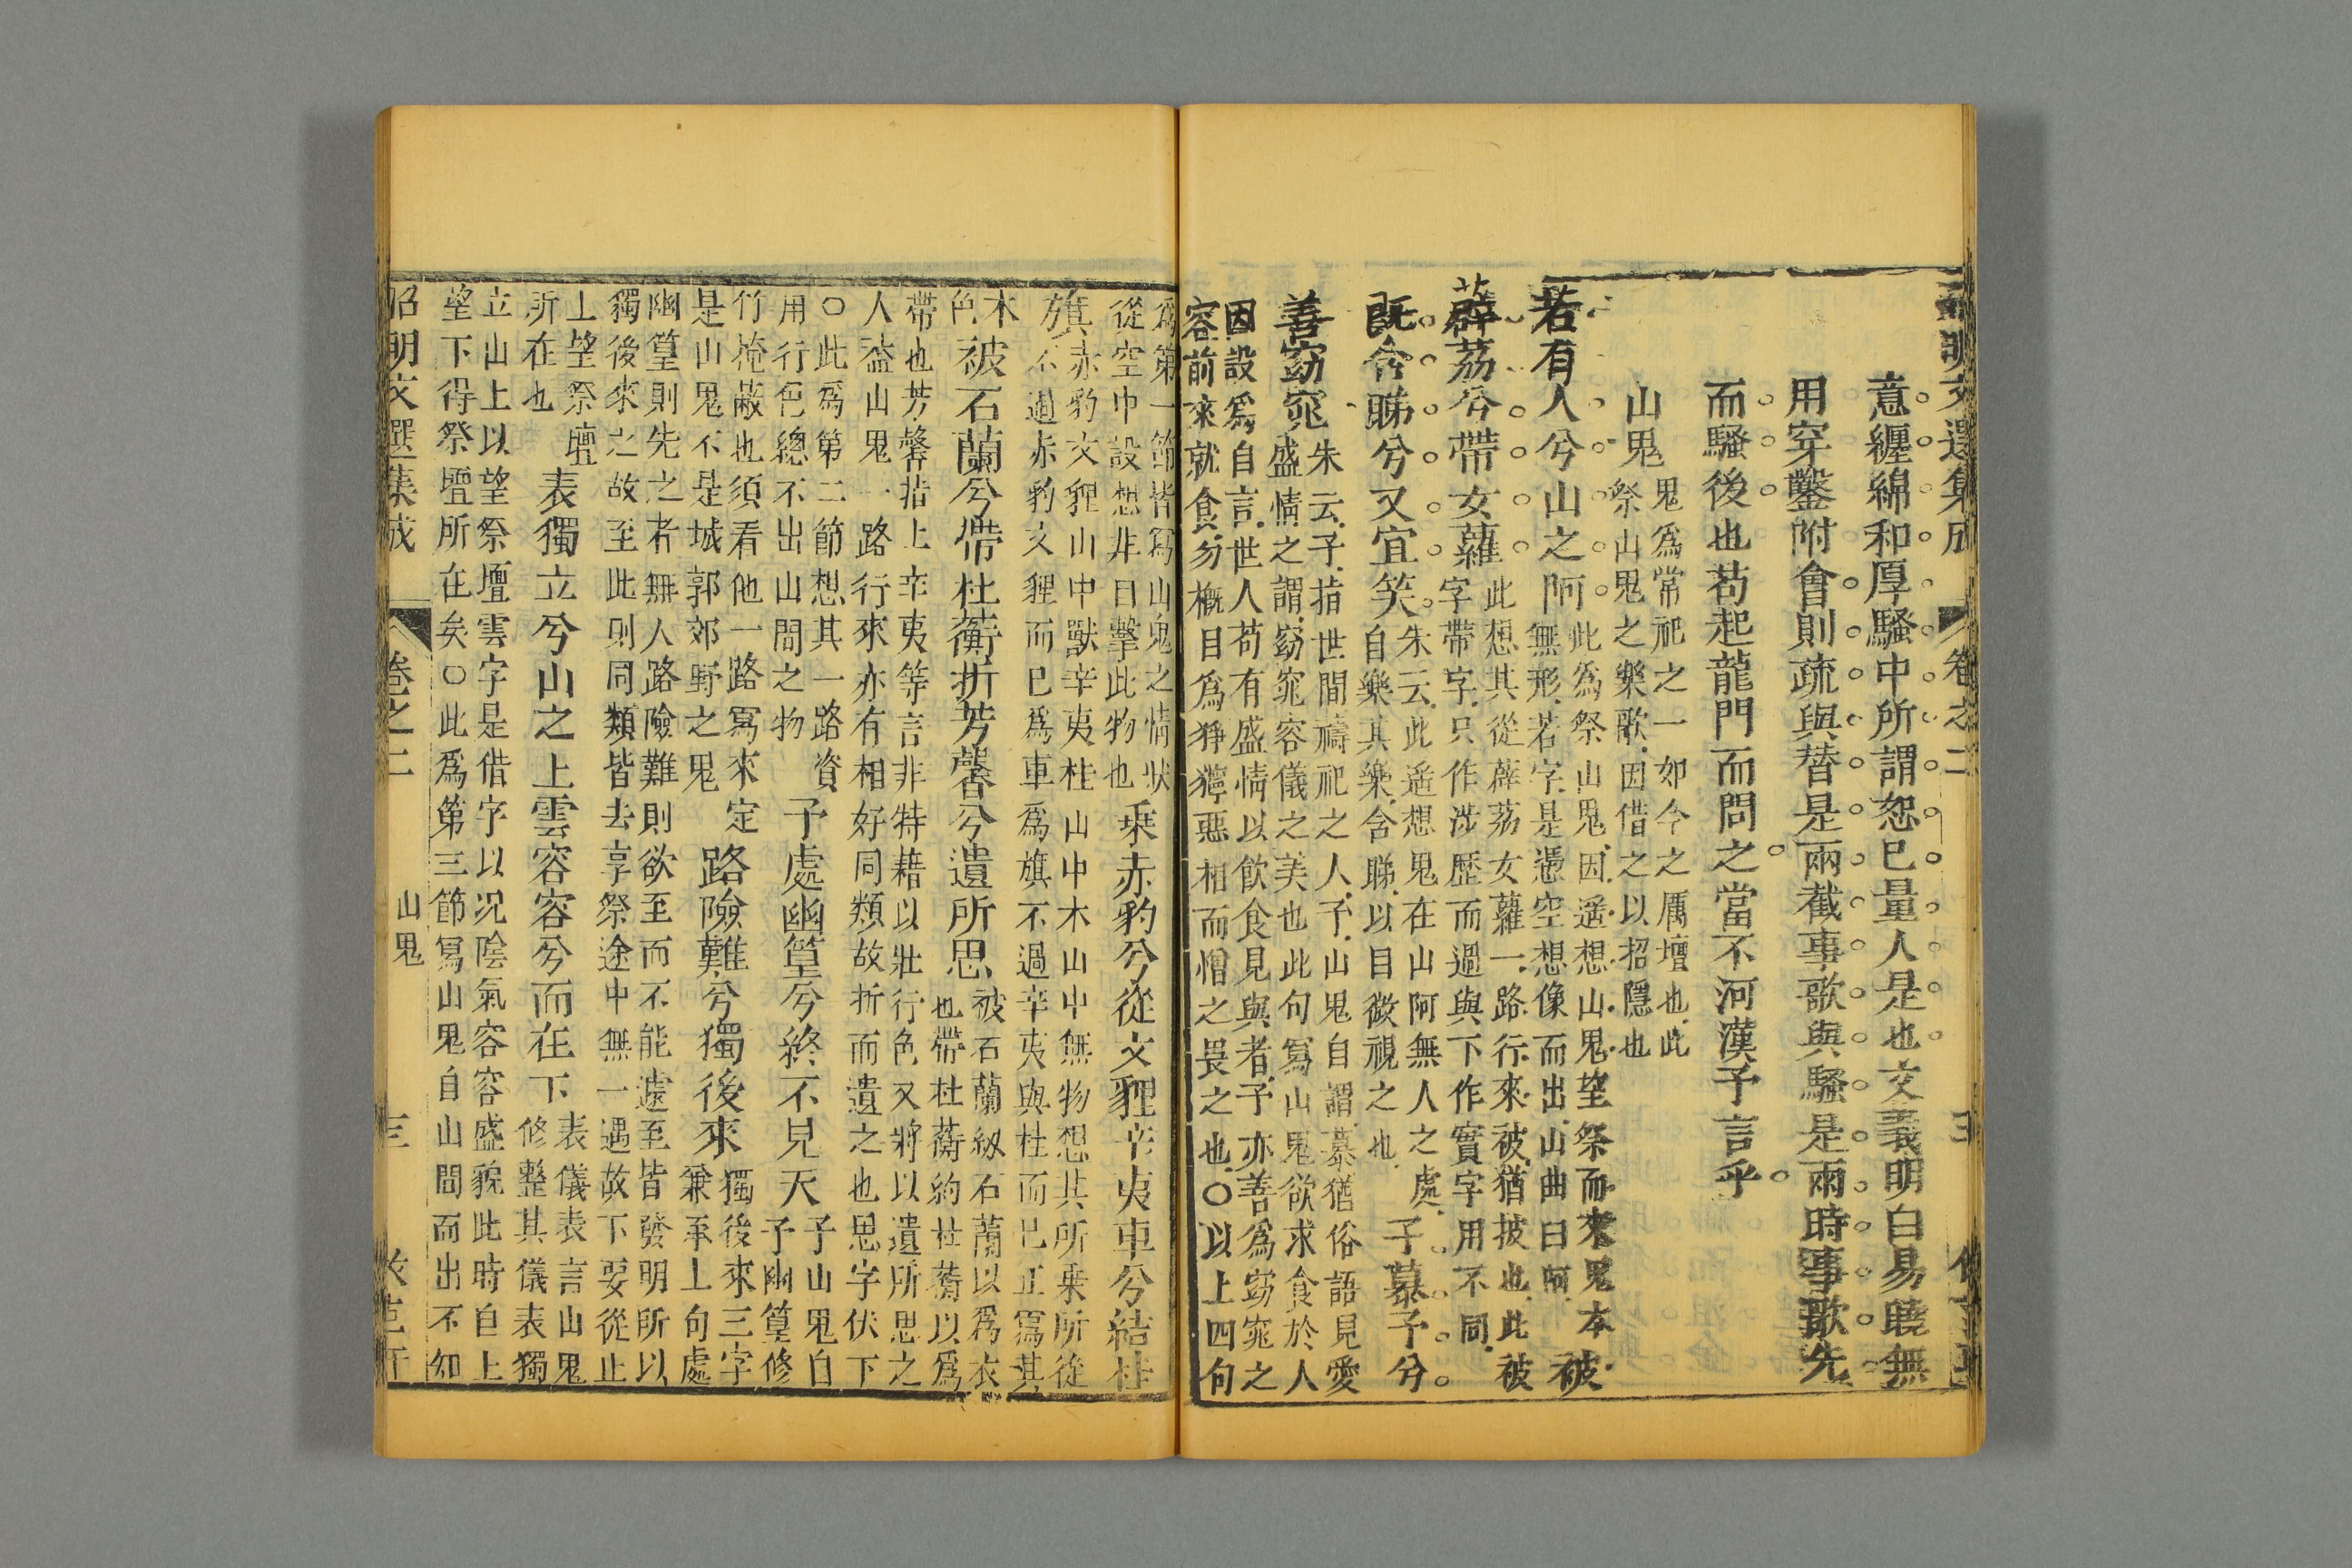 昭明文選集成 卷之二
意纒綿和厚騷中所謂恕已量人是也文義明白易曉無
用穿鑿附會則疏與替是兩截事歌與騷是兩時事歌先
而騷後也苟起龍門而問之當不河漢予言乎
山鬼
鬼爲常祀之一如今之厲壇也此
祭山鬼之樂歌因借之以招隱也
若有人兮山之阿
此爲祭山鬼因遥想山鬼望祭而來鬼本
無形若字是憑空想像而出山曲曰阿
被
薜荔兮帶女蘿
此想其從薜荔女蘿一路行來被猶披也此被
字帶字只作涉歷而過與下作實字用不同
既含睇兮又宜笑
朱云此遥想鬼在山阿無人之處
自樂其樂含睇以目微視之也
子慕予兮
善窈窕
朱云子指世間禱祀之人予山鬼自謂慕猶俗語見愛
盛情之謂窈窕容儀之美也此句寫山鬼欲求食於人
因設爲自言世人苟有盛情以飲食見與者予亦善爲窈窕之
容前來就食勿概目爲猙獰惡相而憎之畏之也○以上四句
爲第一節皆寫山鬼之情狀
從空中設想非曰擊此物也
乗赤豹兮從文貍辛夷車兮結桂
旗
赤豹文貍山中獸辛夷桂山中木山中無物想其所乗所從
不過赤豹文貍而已爲車爲旗不過辛夷與桂而已正寫其
本
色
被石蘭兮帶杜蘅折芳馨兮遺所思
被石蘭紉石蘭以爲衣
也帶杜蘅約杜蘅以爲
帶也芳馨指上辛夷等言非特藉以壯行色又將以遺所思之
人蓋山鬼一路行來亦有相好同類故折而遺之也思字伏下
○此爲第二節想其一路資
用行色總不出山間之物
予處幽篁兮終不見天
予山鬼自
予幽篁修
竹掩蔽也須看他一路寫來定
是山鬼不是城郭郊野之鬼
路險難兮獨後來
獨後來三字
兼承上句處
幽篁則先之者無人路險難則欲至而不能遽至皆發明所以
獨後來之故至此則同類皆去享祭途中無一遇故下要從止
上望祭壇
所在也
表獨立兮山之上雲容容兮而在下
表儀表言山鬼
修整其儀表獨
立山上以望祭壇雲字是借字以况陰氣容容盛貌此時自上
望下得祭壇所在矣○此爲第三節寫山鬼自山間而出不知
昭明文選集成 卷之二 山鬼